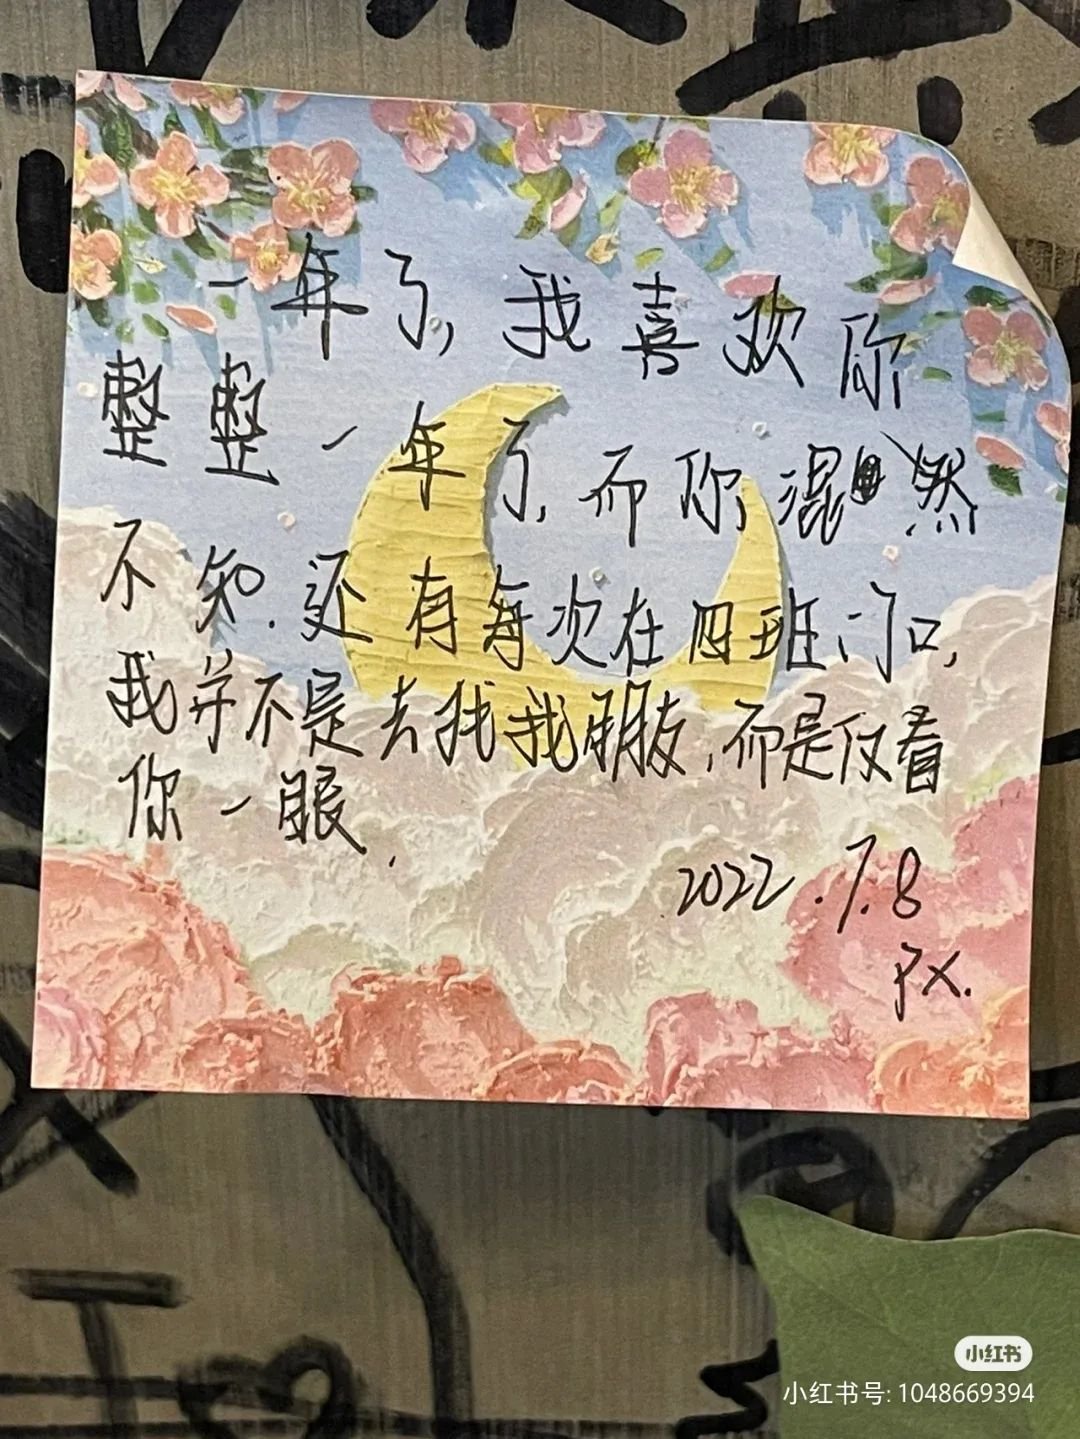 一年了,我喜欢你
整整一年了,而你混然
不知.还有每次在四班门口,
我并不是去找我朋友,而是仅看
你一眼.
2022.7.8
小红书
小红书号: 1048669394